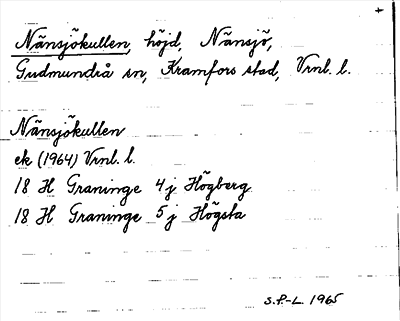 +
Nänsjökullen, höjd, Nänsjö,
Gudmundrå sn, Kramfors stad, Vrnl. l.
Nänsjökullen
ek (1964) Vrnl. l.
18 H Graninge 4j Högberg
18 H Graninge 5j Högsta
S.P.-L. 1965